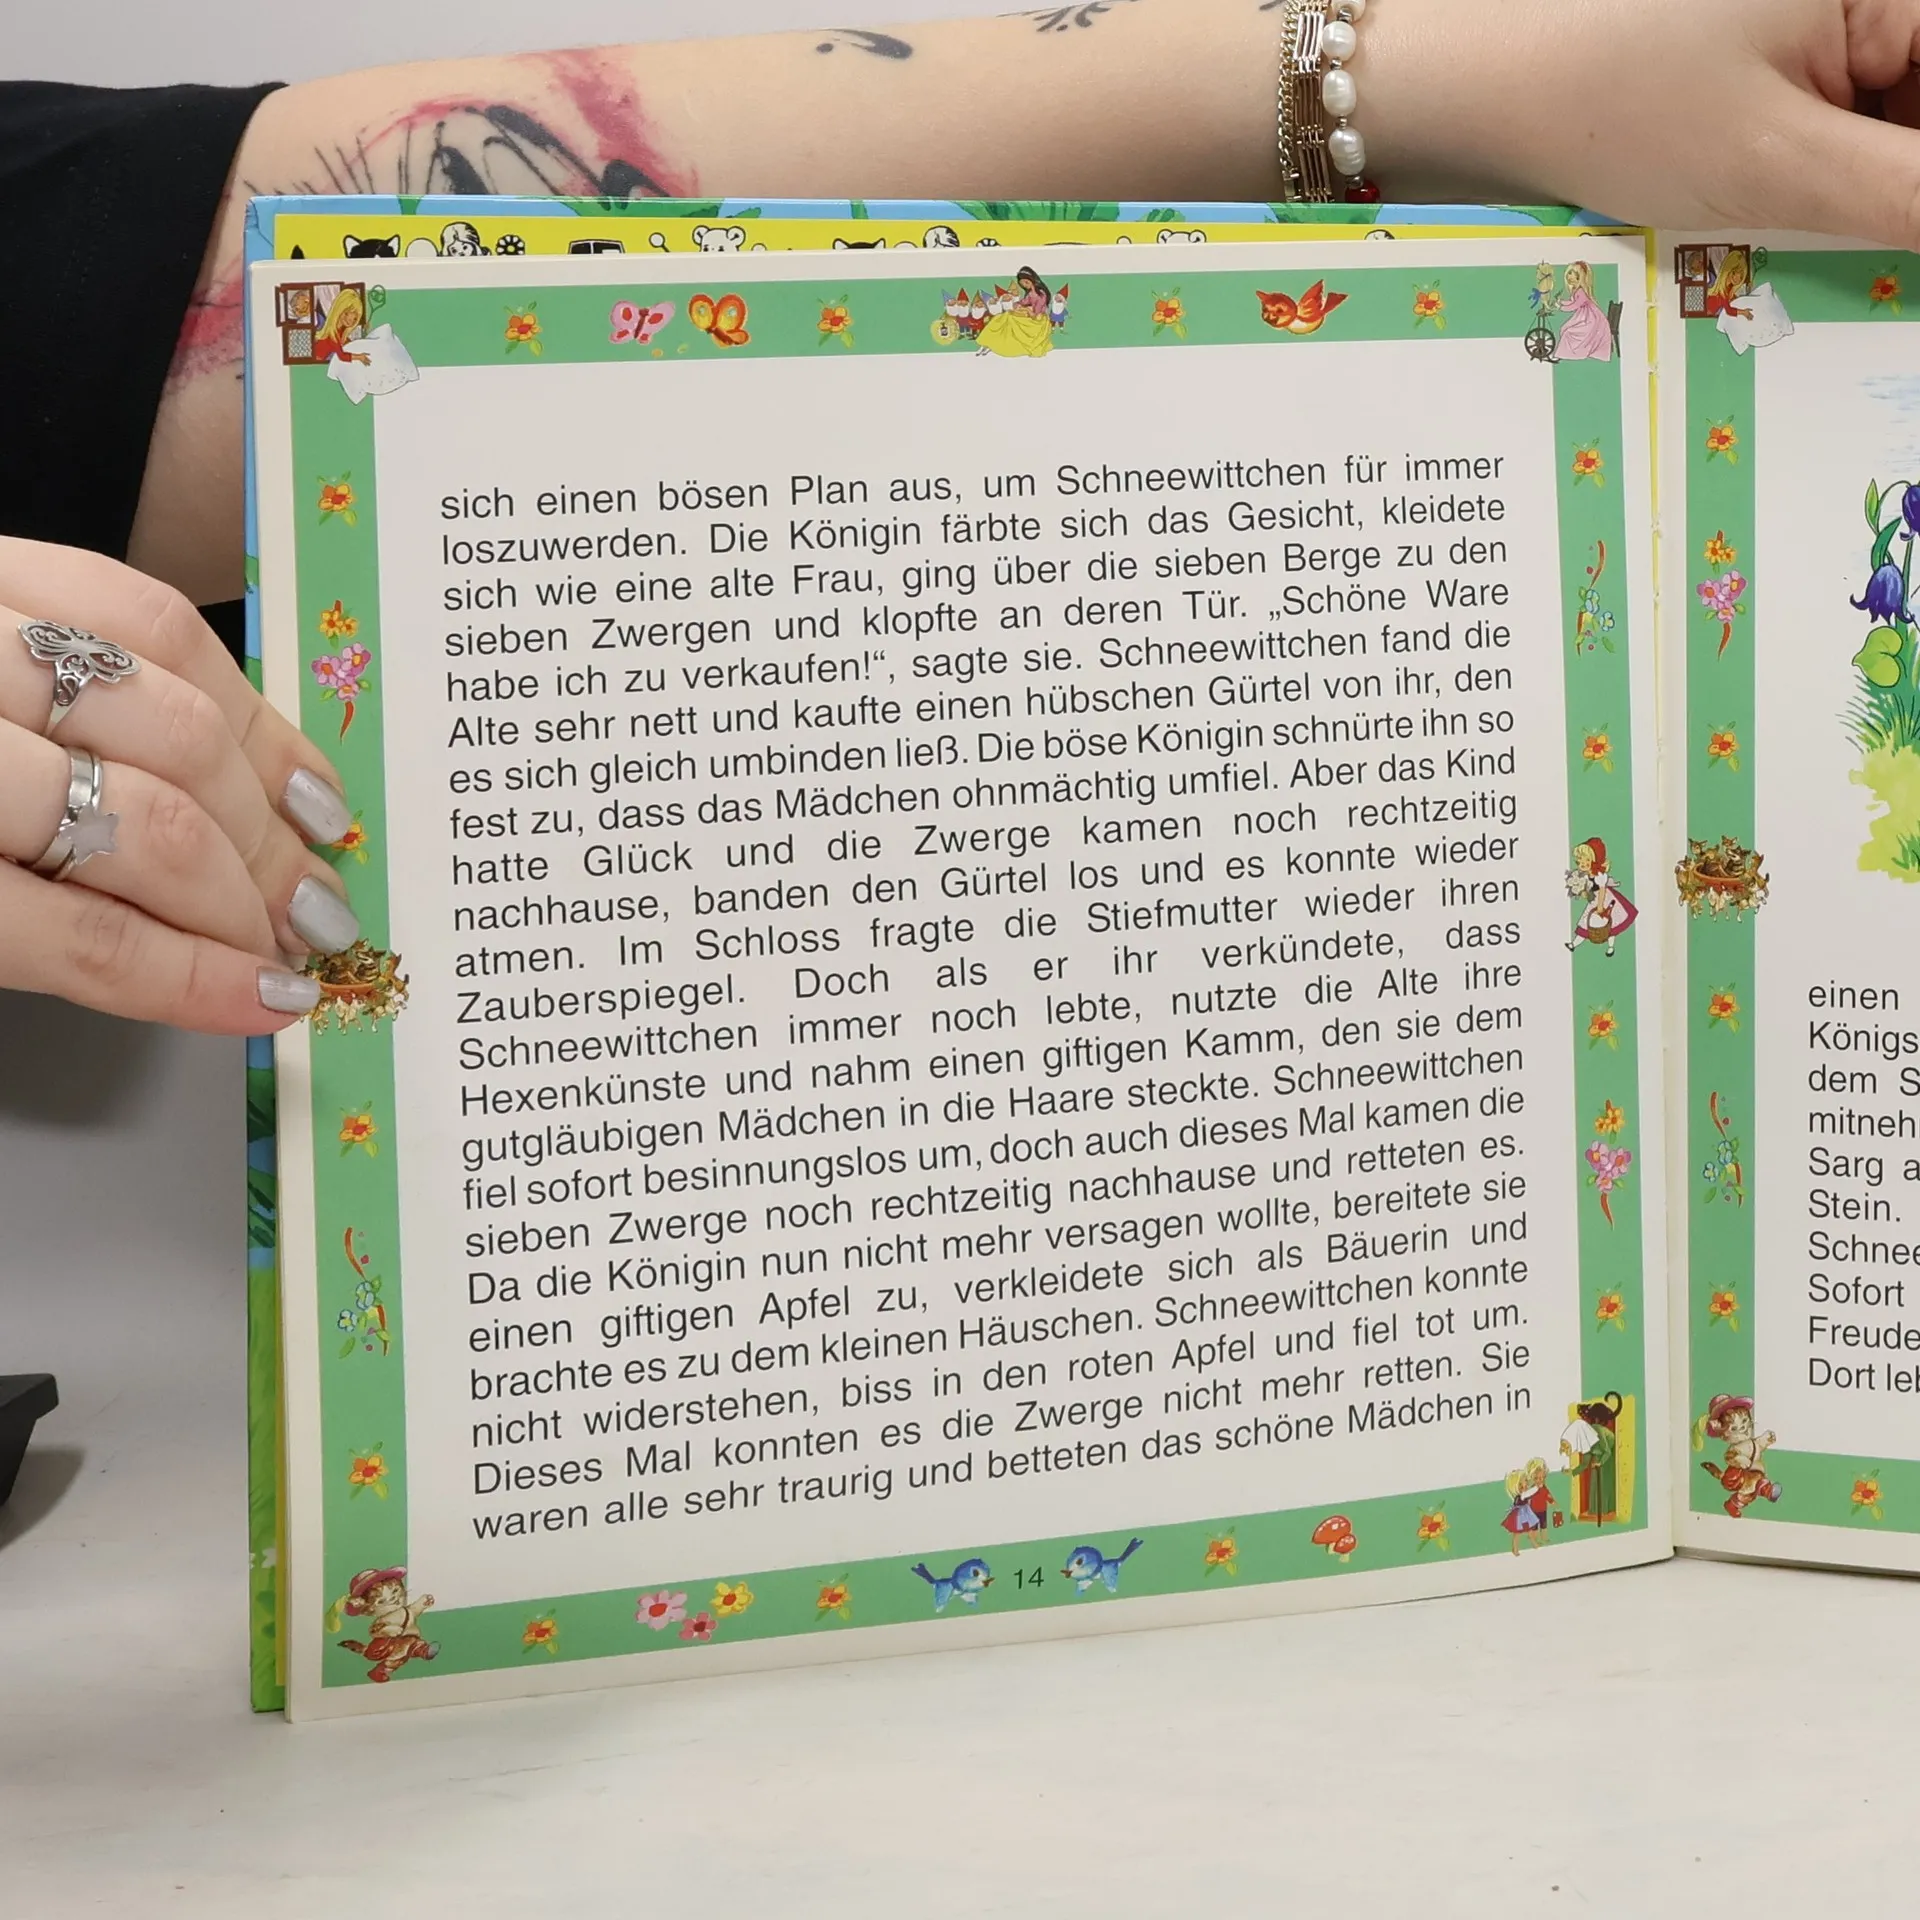 sich einen bösen Plan aus, um Schneewittchen für immer
loszuwerden. Die Königin färbte sich das Gesicht, kleidete
sich wie eine alte Frau, ging über die sieben Berge zu den
sieben Zwergen und klopfte an deren Tür. „Schöne Ware
habe ich zu verkaufen!“, sagte sie. Schneewittchen fand die
Alte sehr nett und kaufte einen hübschen Gürtel von ihr, den
es sich gleich umbinden ließ. Die böse Königin schnürte ihn so
fest zu, dass das Mädchen ohnmächtig umfiel. Aber das Kind
hatte Glück und die Zwerge kamen noch rechtzeitig
nachhause, banden den Gürtel los und es konnte wieder
atmen. Im Schloss fragte die Stiefmutter wieder ihren
Zauberspiegel. Doch als er ihr verkündete, dass
Schneewittchen immer noch lebte, nutzte die Alte ihre
Hexenkünste und nahm einen giftigen Kamm, den sie dem
gutgläubigen Mädchen in die Haare steckte. Schneewittchen
fiel sofort besinnungslos um, doch auch dieses Mal kamen die
sieben Zwerge noch rechtzeitig nachhause und retteten es.
Da die Königin nun nicht mehr versagen wollte, bereitete sie
einen giftigen Apfel zu, verkleidete sich als Bäuerin und
brachte es zu dem kleinen Häuschen. Schneewittchen konnte
nicht widerstehen, biss in den roten Apfel und fiel tot um.
Dieses Mal konnten es die Zwerge nicht mehr retten. Sie
waren alle sehr traurig und betteten das schöne Mädchen in
14
einen
Königs
dem S
mitneh
Sarg a
Stein.
Schnee
Sofort
Freude
Dort leb